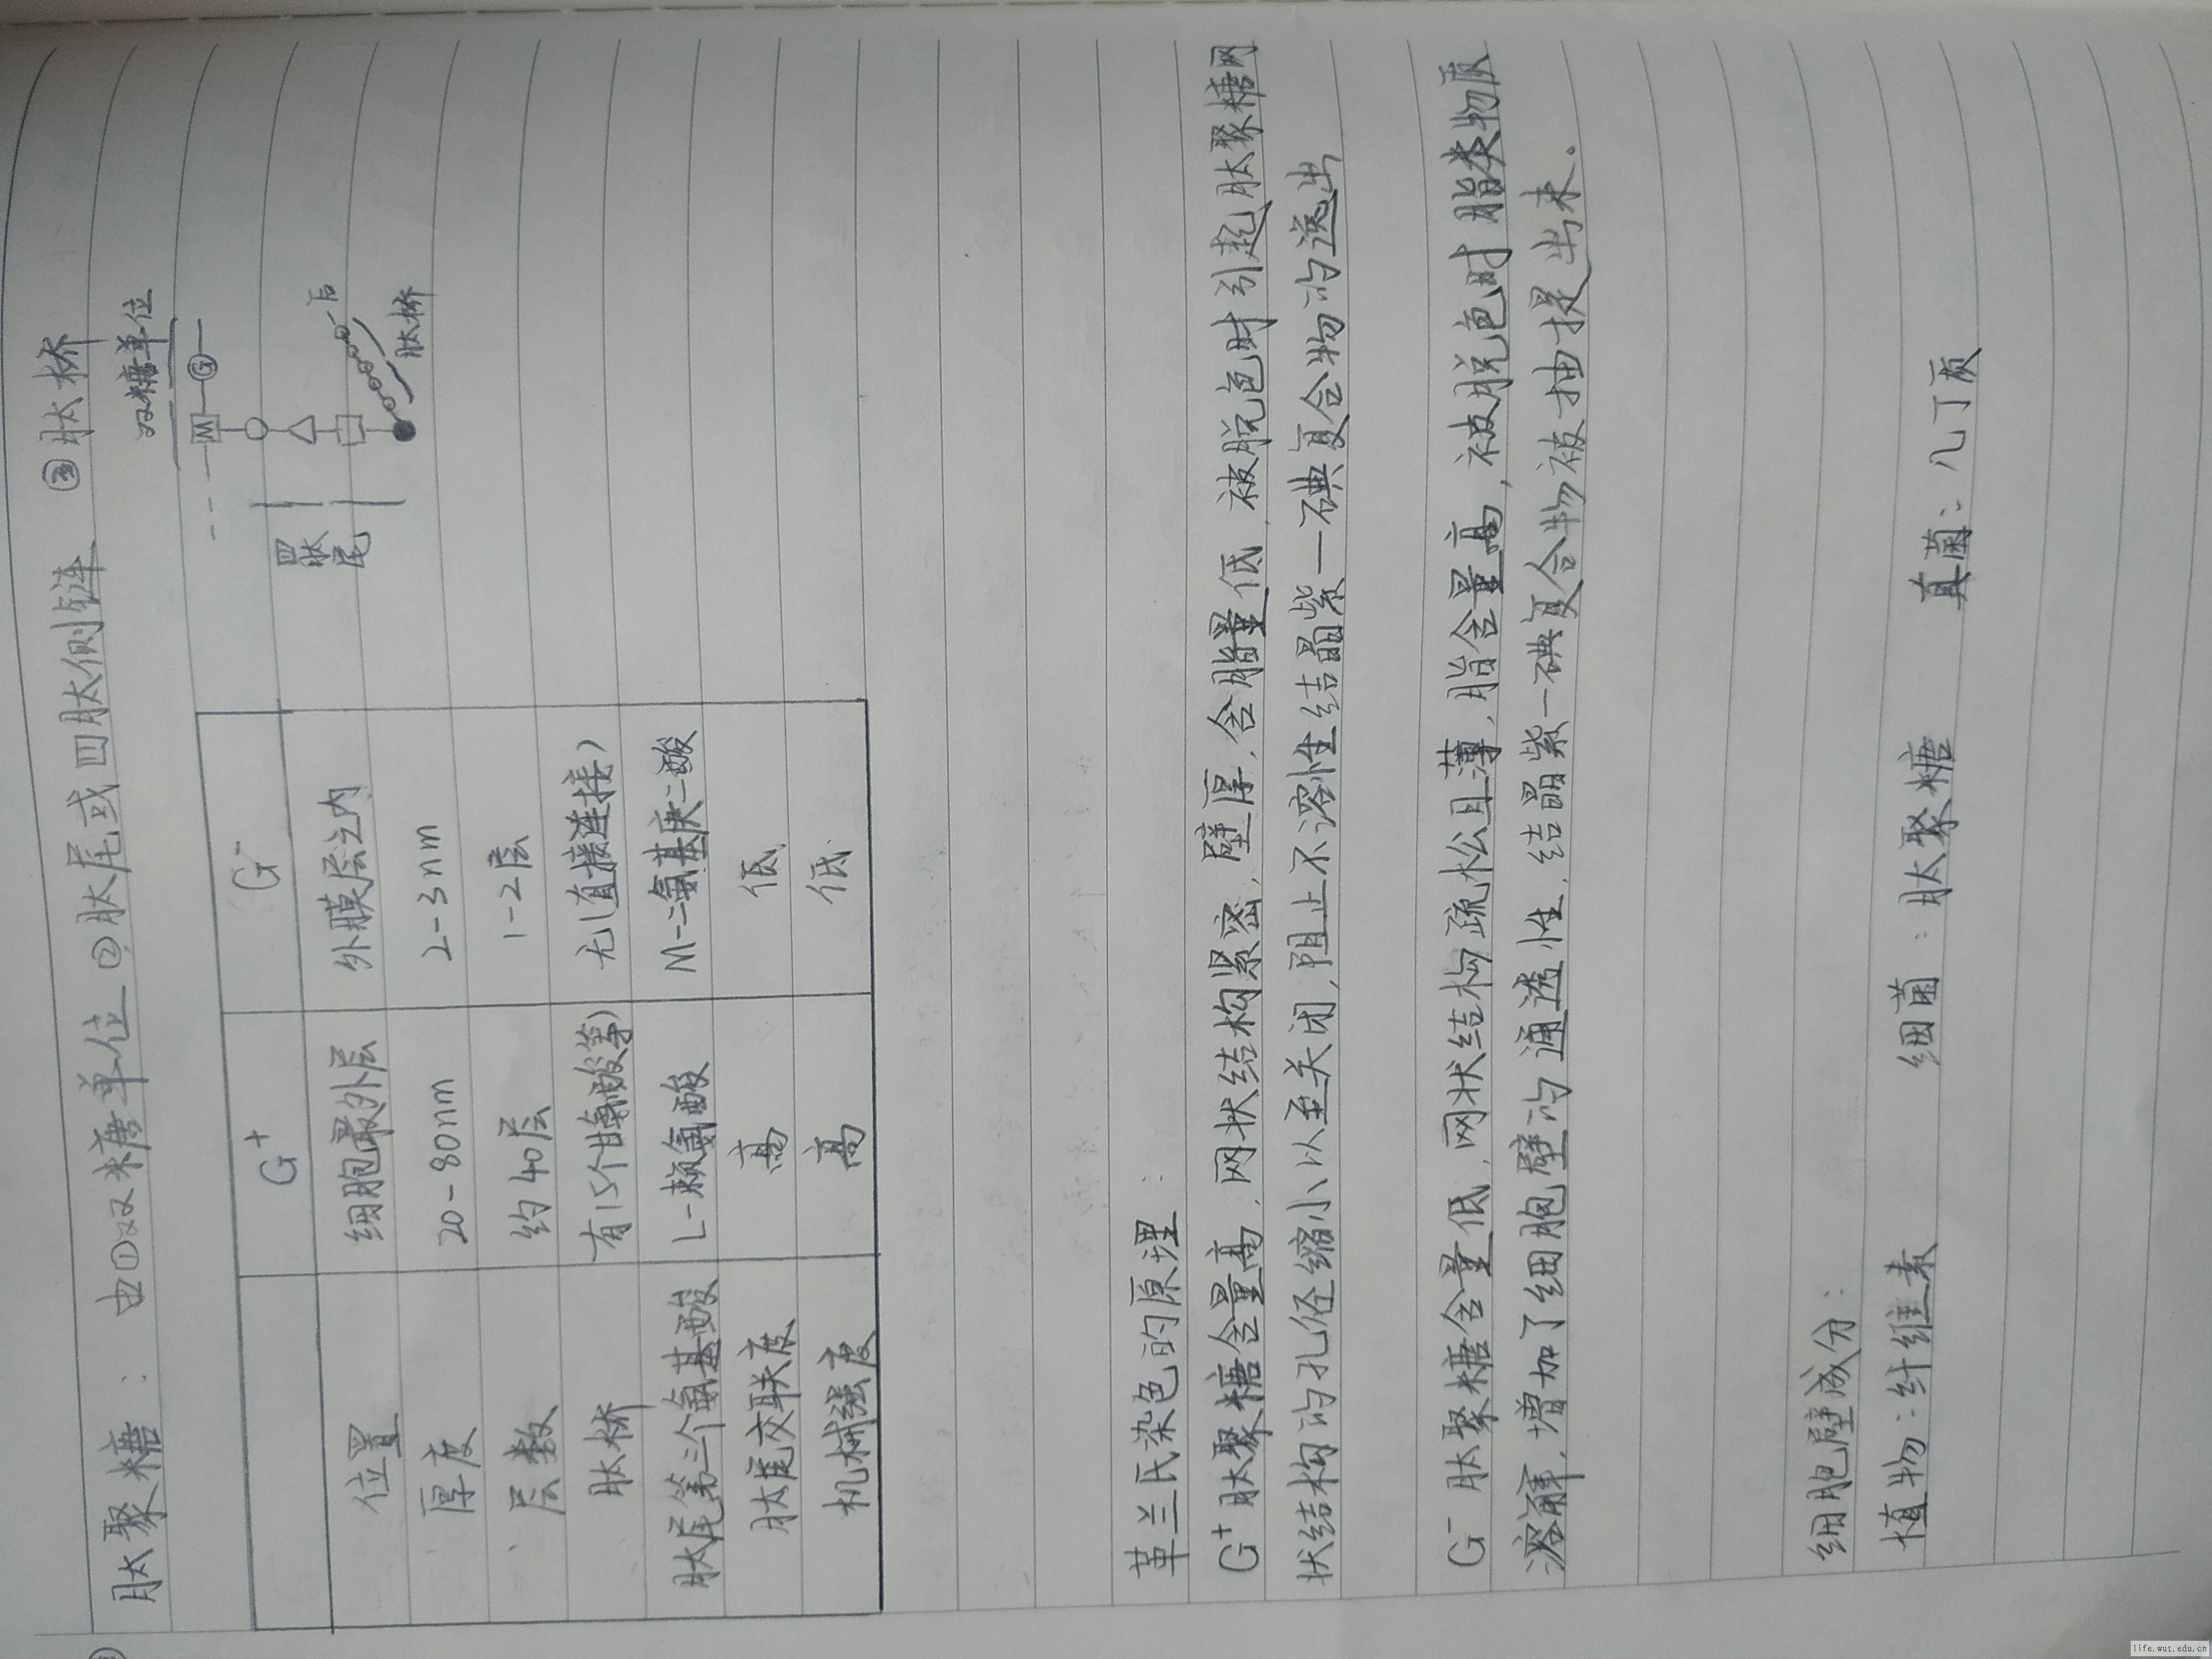 肽聚糖：由①双糖单位 ②肽尾或四肽侧链 ③肽桥
双糖单位
M G
四肽尾
肽桥
G⁺ G⁻
位置 细胞最外层 外膜层之内
厚度 20-80nm 2-3nm
层数 约40层 1-2层
肽桥 有(5个甘氨酸等) 无(直接连接)
肽尾第三个氨基酸 L-赖氨酸 M-二氨基庚二酸
肽尾交联度 高 低
机械强度 高 低
革兰氏染色的原理：
G⁺肽聚糖含量高，网状结构紧密，壁厚，含脂量低，被脱色时引起肽聚糖网
状结构的孔径缩小以至关闭，阻止不溶性结晶紫—碘复合物的逸出
G⁻肽聚糖含量低，网状结构疏松且薄，脂含量高，被脱色时脂类物质
溶解，增加了细胞壁的通透性，结晶紫—碘复合物被抽提出来。
细胞壁成分：
植物：纤维素 细菌：肽聚糖 真菌：几丁质
life.wut.edu.cn